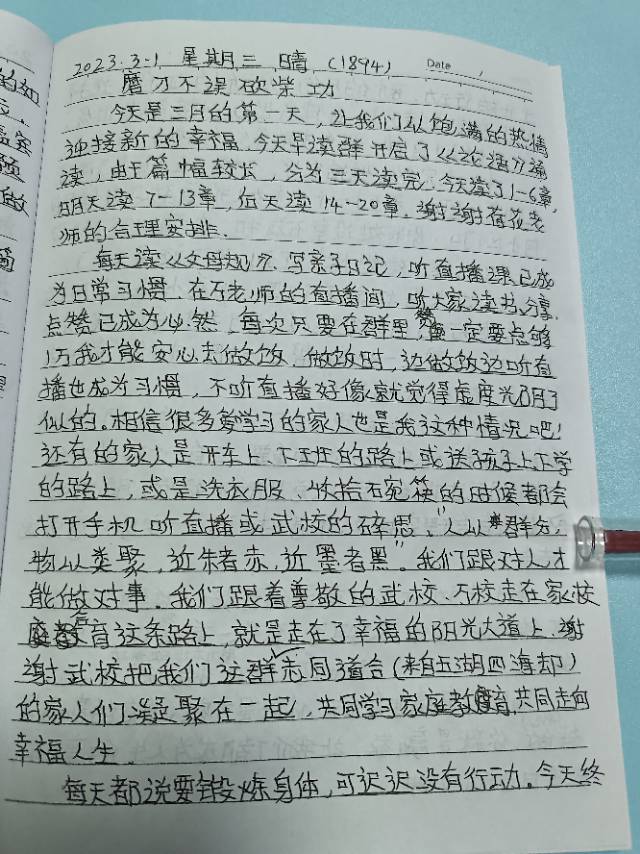 2023.3.1 星期三 晴 (1894)
Date
磨刀不误砍柴功
今天是三月的第一天，让我们以饱满的热情
迎接新的幸福。今天早读群开启了《论语》诵
读，由于篇幅较长，分为三天读完，今天读了1-6章，
明天读7-13章，后天读14-20章。谢谢荷花老
师的合理安排。
每天读《父母规》、写亲子日记，听直播课已成
为日常习惯。在万老师的直播间，听大家读书、分享、
点赞已成为必然，每次只要在群里，赞一定要点够
1万我才能安心去做饭，做饭时，边做饭边听直
播也成为习惯，不听直播好像就觉得虚度光阴了
似的。相信很多爱学习的家人也是我这种情况吧！
还有的家人是开车上、下班的路上或送孩子上下学
的路上，或是洗衣服、收拾碗筷的时候都会
打开手机听直播或武校的碎思。"人以群分，
物以类聚，近朱者赤，近墨者黑"。我们跟对人才
能做对事。我们跟着尊敬的武校、万校走在家校
庭教育这条路上，就是走在了幸福的阳光大道上。谢
谢武校把我们这群志同道合（来自五湖四海却）
的家人们凝聚在一起，共同学习家庭教育，共同走向
幸福人生。
每天都说要锻炼身体，可迟迟没有行动。今天终
的如
做